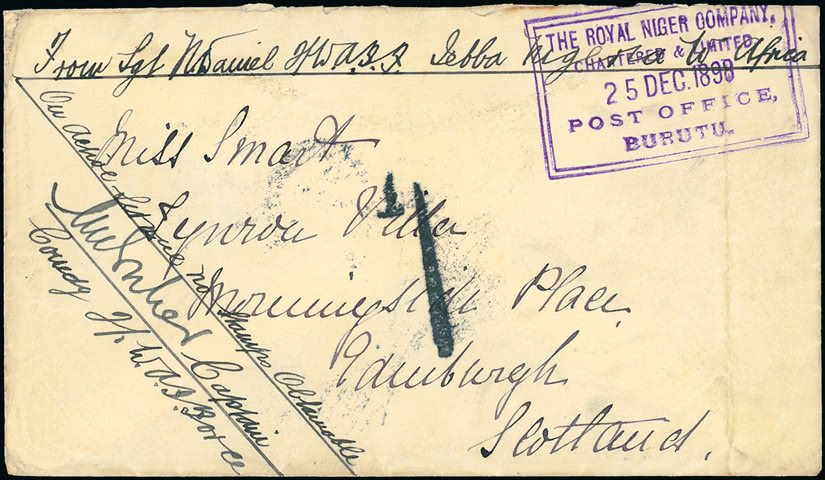 From Sgt McDaniel H W.A.F.F. Jebba Nigeria W. Africa
THE ROYAL NIGER COMPANY,
CHARTERED & LIMITED
25 DEC. 1898
POST OFFICE,
BURUTU.
On Active Service no Stamps Obtainable
Captain
Comdg H. W.A.F. Force
Miss Smart
Lynroa Villa
Morningside Place
Edinburgh
Scotland.
1